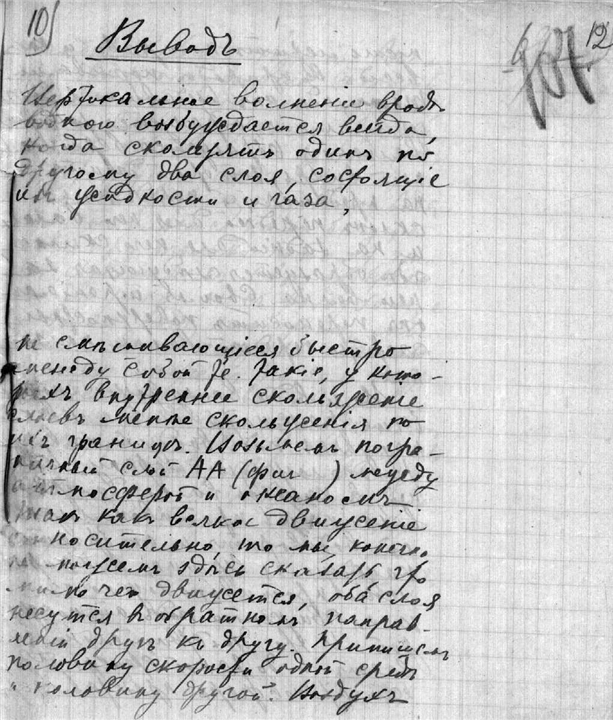 10)
12
Выводъ
Вертикальное волненіе вродѣ
водного возбуждается всегда,
когда скользятъ одинъ по
другому два слоя, состоящіе
изъ жидкости и газа,
не смѣшивающіеся быстро
между собой, т.е. такіе, у кото-
рыхъ внутреннее скольженіе
слоевъ менѣе скольженія по
ихъ границѣ. Возьмемъ погра-
ничный слой АА (фиг ) между
атмосферой и океаномъ
такъ какъ всякое движеніе
относительно, то мы, конечно
не можемъ здѣсь сказать, что
мимо чего движется, оба слоя
несутся въ обратномъ направ-
леніи другъ къ другу. Припишемъ
половину скорости одной средѣ
и половину другой. Воздухъ